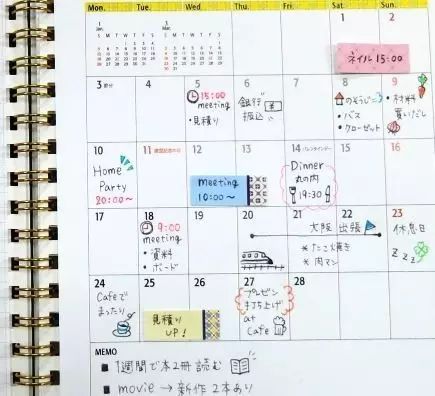 Mon. Tue. Wed. Thu. Fri. Sat. Sun.
1 2
ネイル 15:00
3 節分 4 5 6 7 8 9
15:00
meeting
・見積り
銀行
振込
のそうじ
・バス
・クローゼット
・材料
買いだし
10 11 建国記念の日 12 13 14 バレンタインデー 15 16
Home
Party
20:00〜
meeting
10:00〜
Dinner
丸の内
19:30
17 18 19 20 21 22 23
9:00
meeting
・資料
・ボード
大阪 出張
＊たこ焼き
＊肉マン
休息日
z z z
24 25 26 27 28
Cafeで
まったり
見積り
UP!
プレゼン
打ち上げ
at
Cafe
MEMO
■ 1週間で本2冊 読む
■ movie → 新作 2本あり